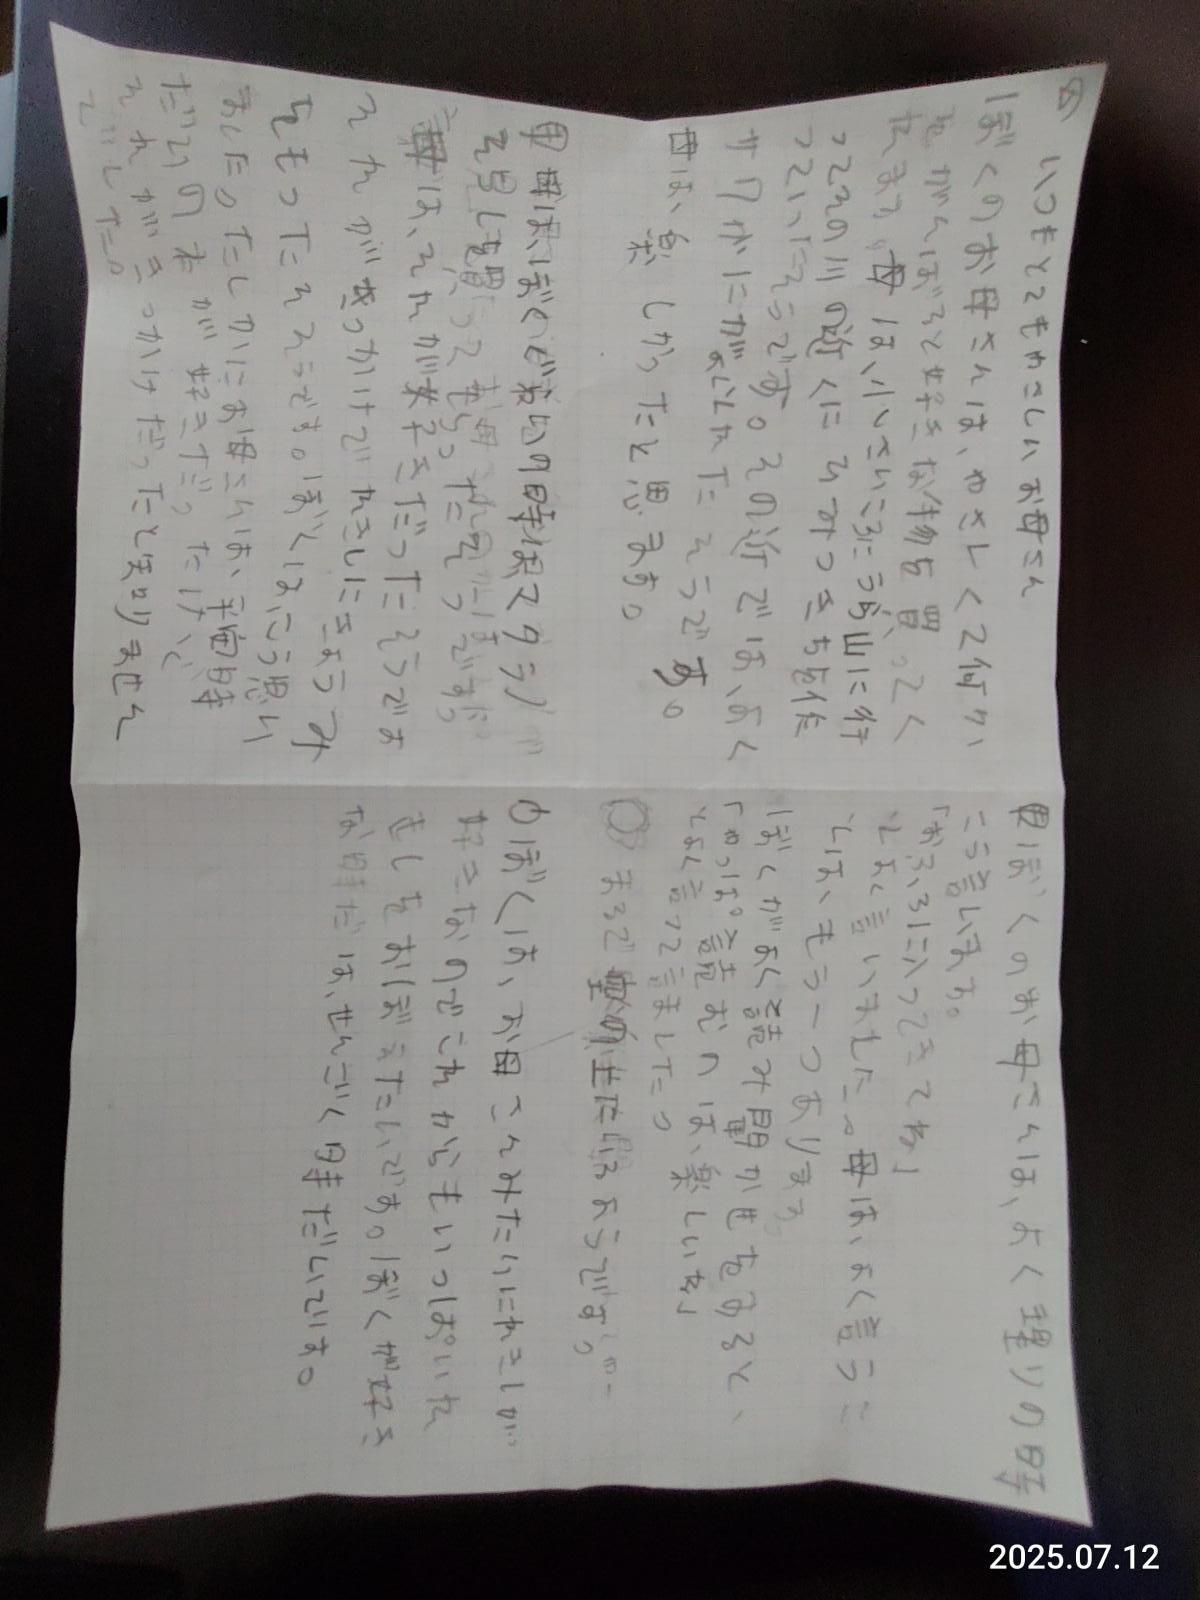 いつもとてもやさしいお母さん
ぼくのお母さんは、やさしくて何か
がんばると好きな物を買ってく
れます。母は小さいころにうら山に行
ってその川の近くにひみつきちを作
っていたそうです。その近では、よく
サワガニがとれたそうです。
母は、楽しかったと思ます。
母は、ぼくど
を買ってもらった
母は、それが好きだったそうです
それがきっかけでれきしにきょうみ
をもったそうです。ぼくは、こう思い
ました。たしかにお母さんは、平安時
だいの本が好きだったけど
それがきっかけだったと知りません
でした。
ぼくのお母さんは、よく理りの時
こう言います。
「おふろに入ってきてね」
とよく言いました。母は、よく言うこ
とは、もう一つあります。
ぼくがよく読み聞かせをすると、
「やっぱ読むのは、楽しいね」
とよく言って言ました。
まるで
ようです。
ぼくは、お母さんみたいにれきしが
好きなのでこれからもいっぱいれ
きしをおぼえたいです。ぼくが好き
な時だいは、せんごく時だいです。
2025.07.12